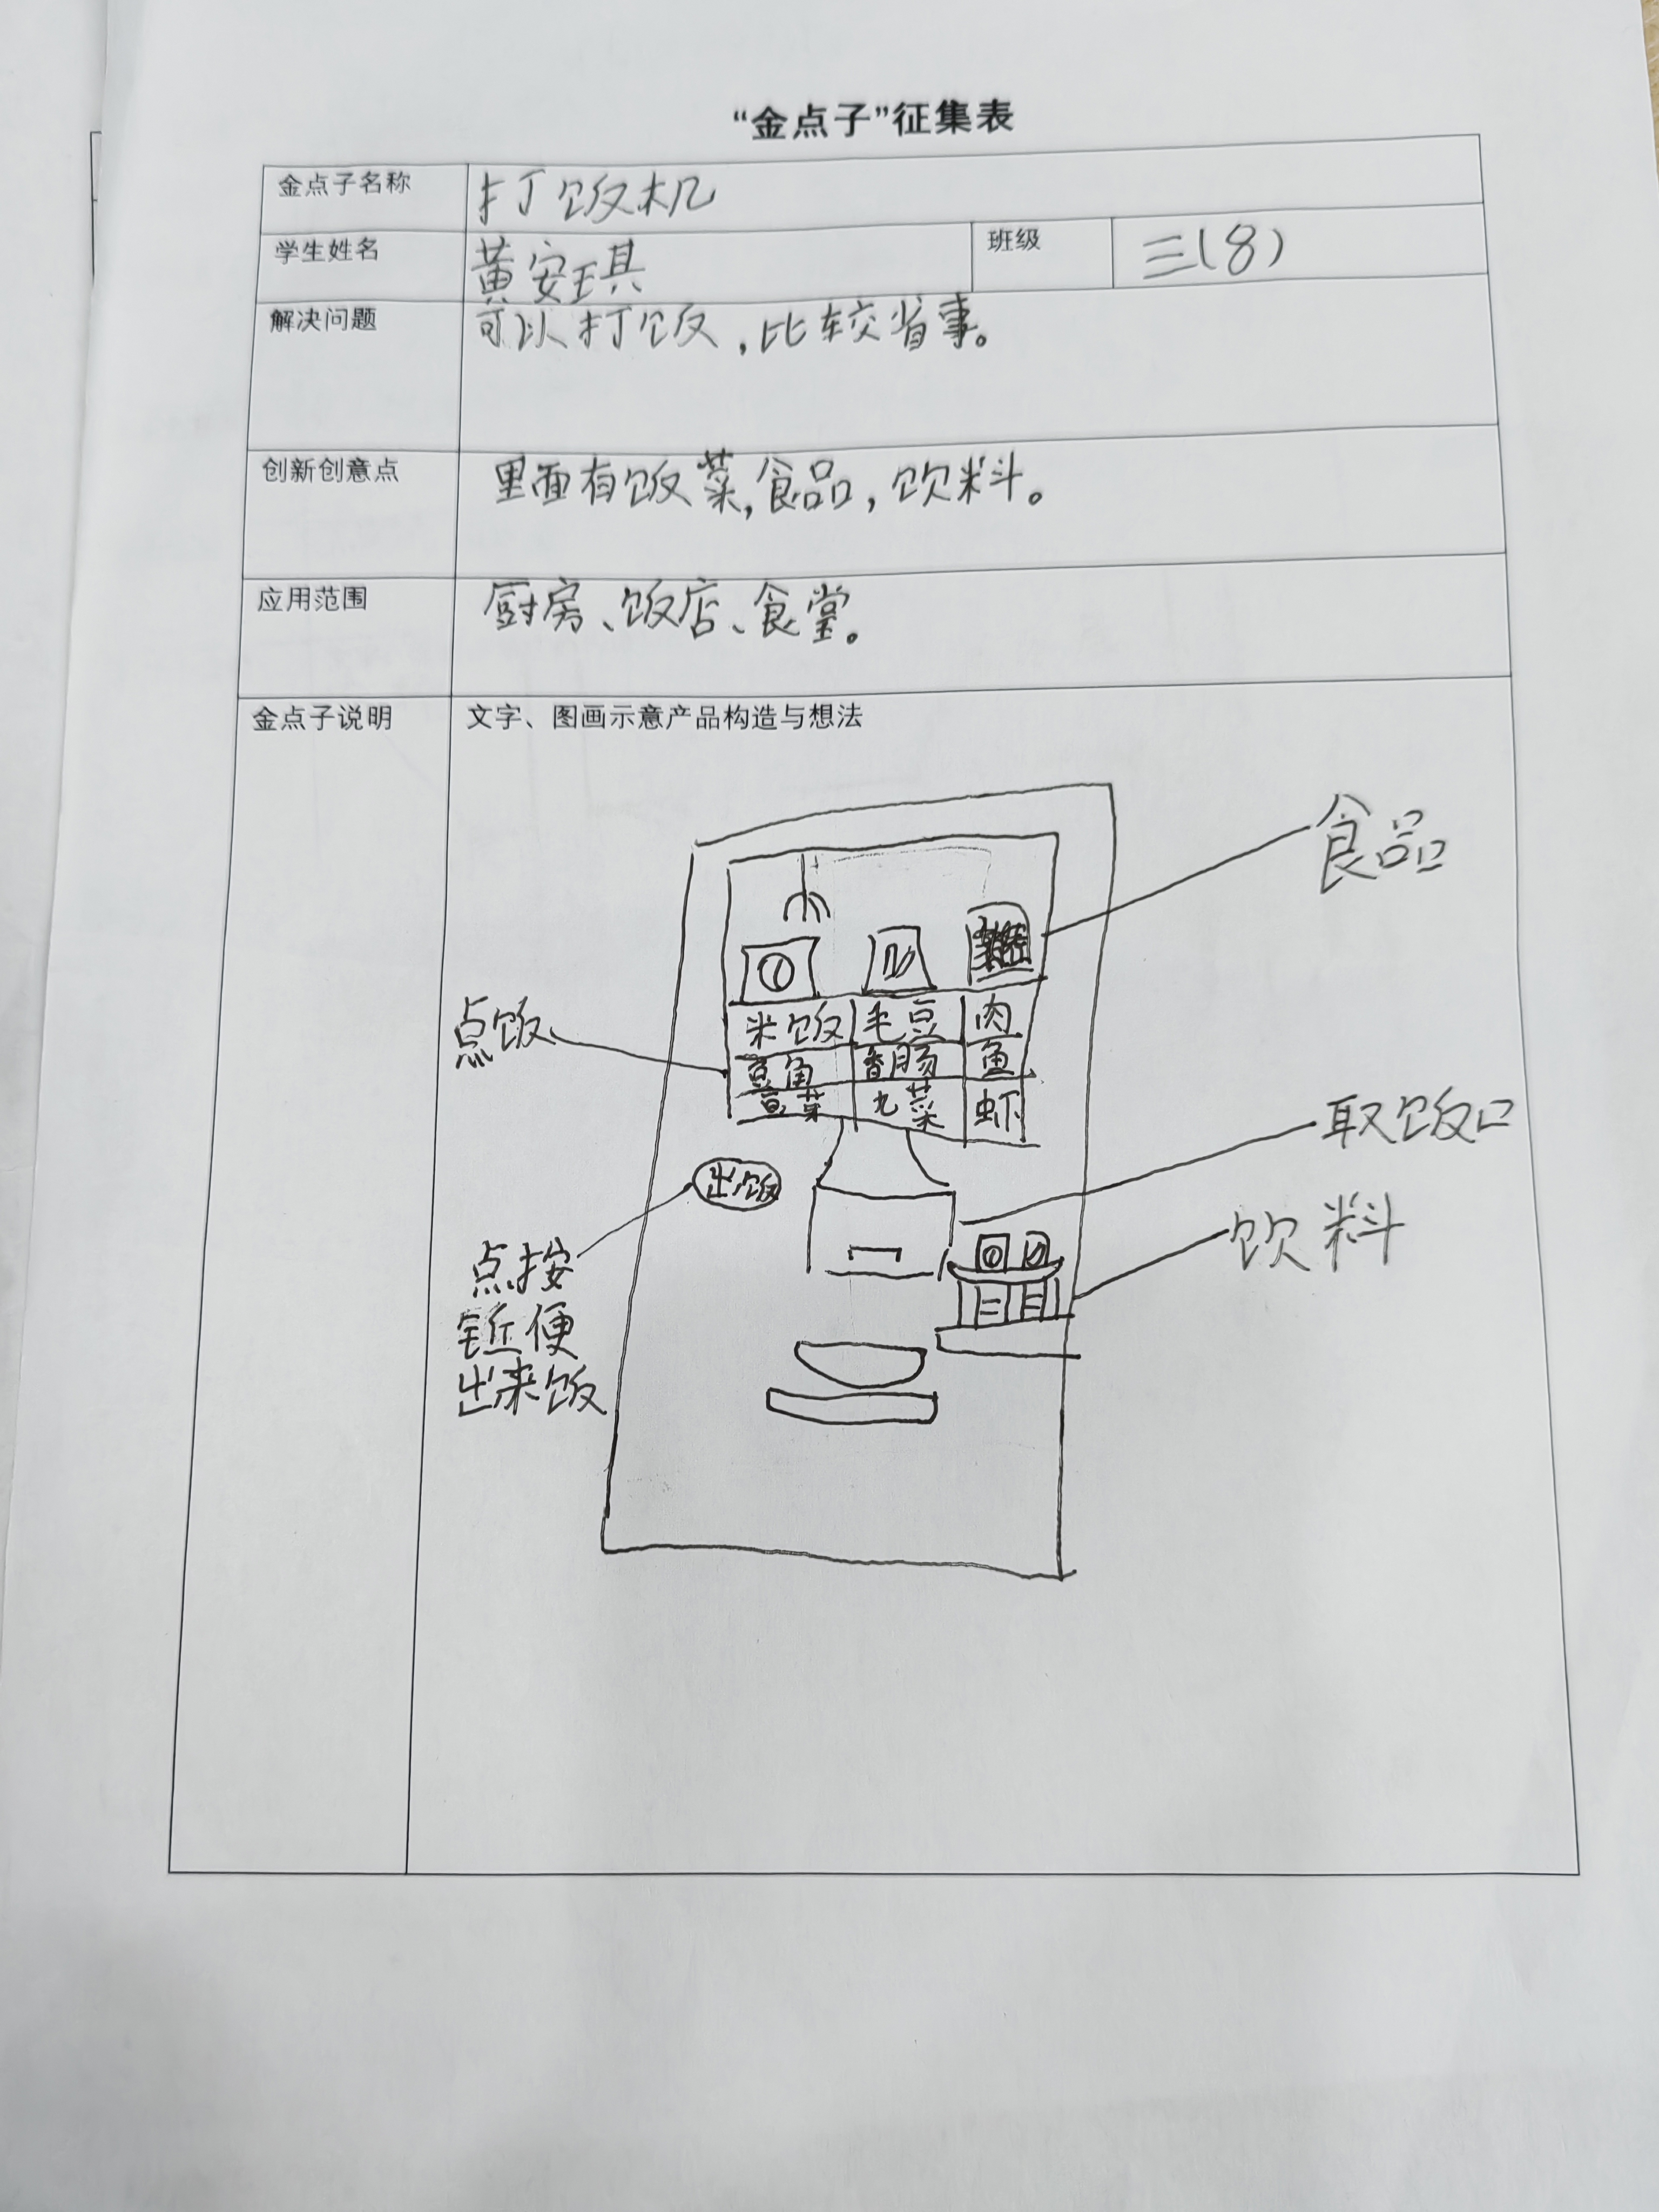 “金点子”征集表
金点子名称 打饭机
学生姓名 黄安琪 班级 三(8)
解决问题 可以打饭,比较省事。
创新创意点 里面有饭菜,食品,饮料。
应用范围 厨房、饭店、食堂。
金点子说明 文字、图画示意产品构造与想法
食品
点饭
米饭 毛豆 肉
豆角 香肠 鱼
豆菜 九菜 虾
取饭口
出饭
饮料
点按
钮便
出来饭